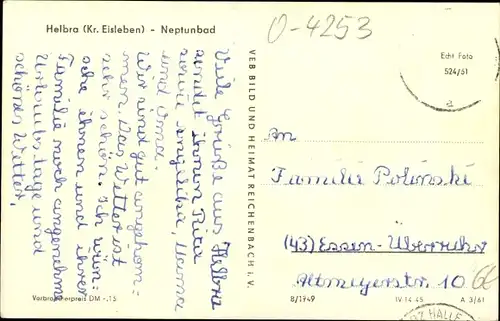 Helbra (Kr. Eisleben) - Neptunbad
O-4253
Echt Foto
524/61
Viele Grüße aus Helbra
sendet Ihnen Rita
sowie Angelika, Mama
und Oma.
Wir sind gut angekom=
men. Das Wetter ist
sehr schön. Ich wün=
sche ihnen und ihrer
Familie noch angenehme
Urlaubstage und
schönes Wetter.
VEB BILD UND HEIMAT REICHENBACH i. V.
An
Familie Polinski
(43) Essen-Überruhr
Altmeyerstr. 10
Verbraucherpreis DM -,15
8/1949
IV-14-45
A 3/61
HALLE